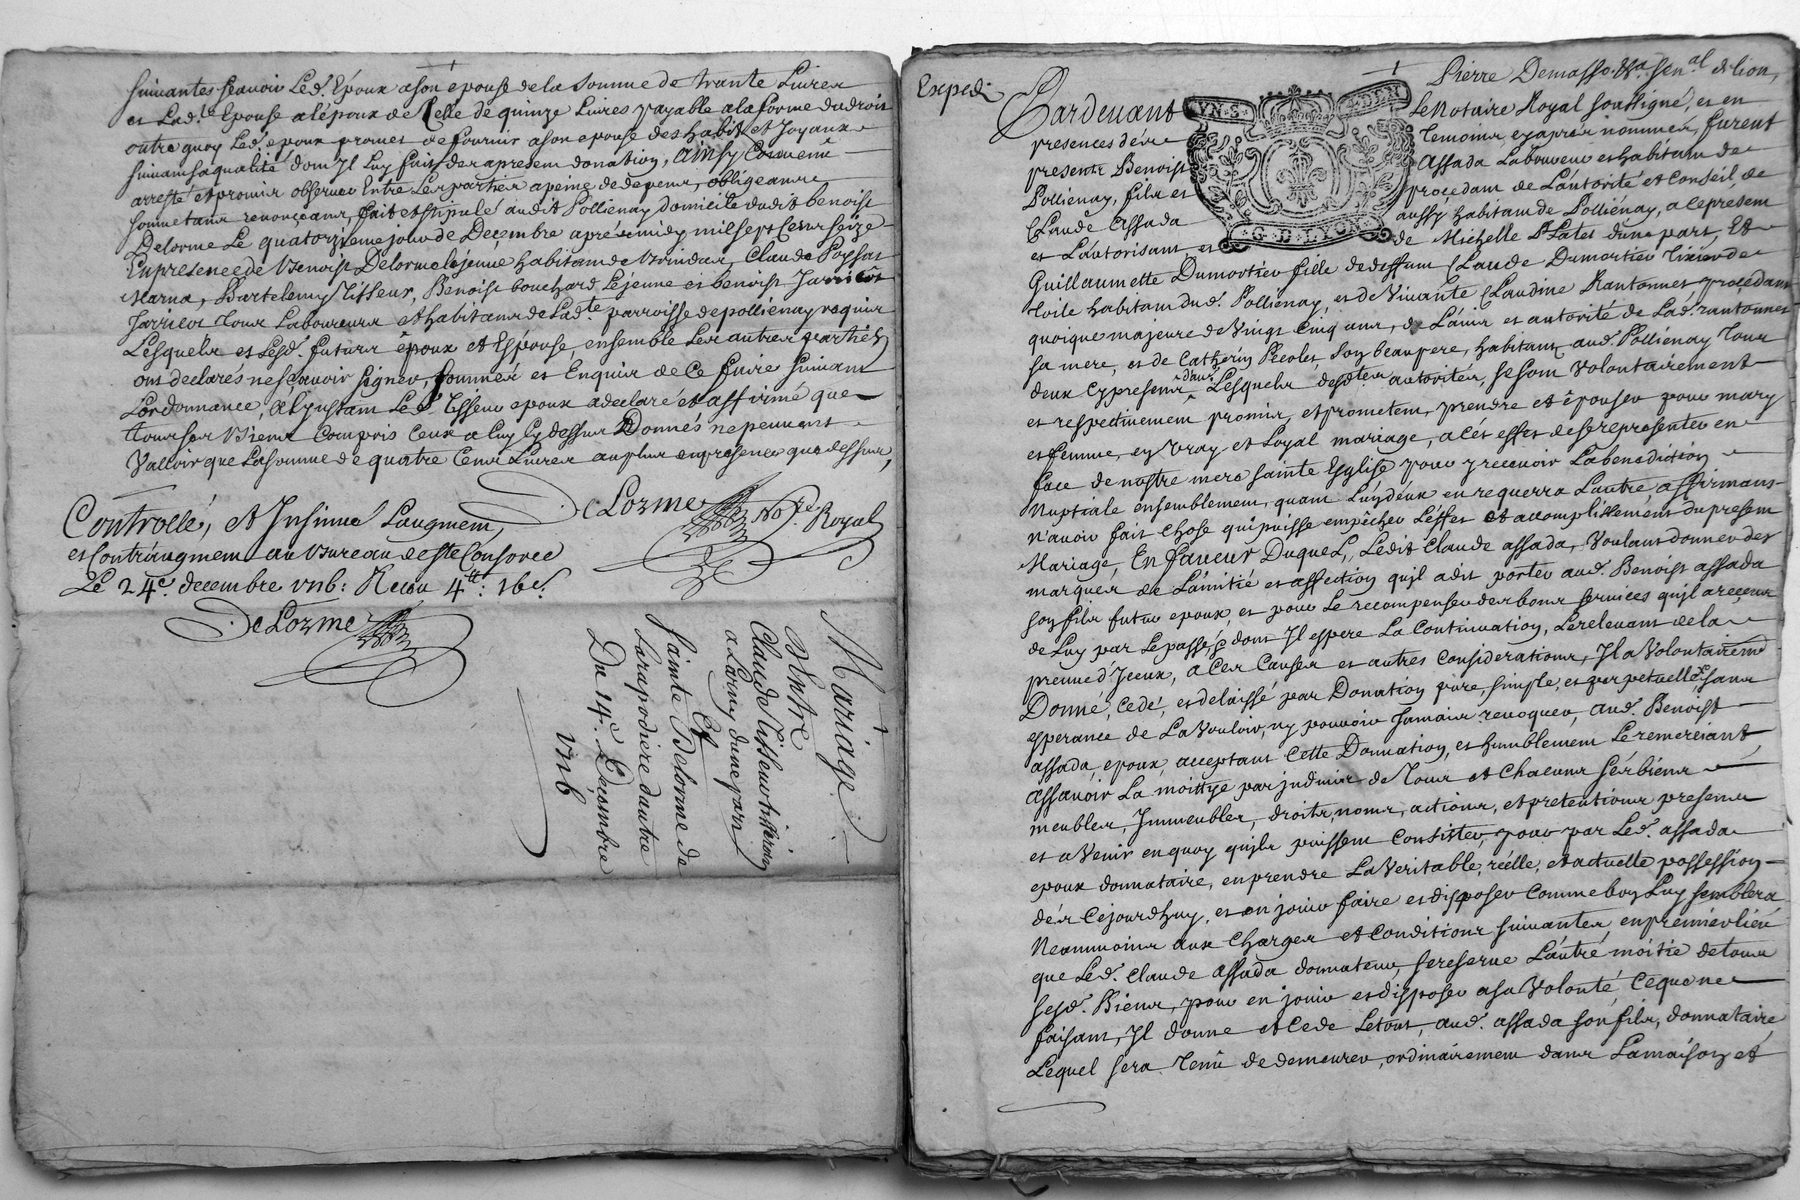 suivantes scavoir Led. Epoux a son epouse de la somme de trante Livres
et Lad.te Epouse a lépoux de Celle de quinze Livres payable a la forme du droit
outre quoy Led. epoux promet de fournir a son epouse des habit et Joyaux
suivant sa qualité dont Il Luy fait des apresent donation, Ainsy Convenû
arresté et promis observer Entre Les parties a peine de depens, obligeans
soumettans renonçeans, fait et stipulé audit Pollienay domicile dudit benoist
Delorme Le quatorzieme jour de Decembre aprés midy mil sept Cens seize
En presence de Benoist Delorme lejeune habitant de Brindas, Claude
Marna, Bartelemy Tisseur, Benoist bouchard Lejeune et benoist Jarricot
Jarricot Tous Laboureurs et habitans de Lad.te parroisse de pollienay requis
Lesquels et Lesd. futurs époux et Espouse, ensemble Les autres parties
ont declarés ne sçavoir signer, sommés et Enquis de Ce faire suivant
Lordonnance, alynstant Led. Tisseur epoux a declaré et affirmé que
tous ses Biens Compris Ceux a luy Cy dessus Donnés ne peuvent
Valloir que La somme de quatre Cens Livres au plus en presence que dessus,
DeLorme No.re Royal
Controllé, et Insinué Laugment,
et Contraugment au Bureau de Ste Consorce
Le 24e. decembre 1716: Receu 4tt: 16s.
DeLorme
Mariage
Entre
Claude Tisseur tissier
a Larny d'une part
Et
Sainte Delorme de
Larapodiere dautre
Du 14.e Decembre
1716
Expedi
Pardevant Pierre Demasso. Sen.al de lion,
Le Notaire Royal soussigné, et en
presences des Temoins cy apres nommés, furent
presents Benoist Assada Laboureur et habitant de
Pollienay, fils et procedant de Lautorité et Conseil, de
Claude Assada aussy habitant de Pollienay, a Cepresent
et Lautorisant, et de Michelle d'une part, Et
VN.S
G.D.LYON
Guillaumette Dumortier fille de deffunt Claude Dumortier Tixier de
toile habitant dud. Pollienay, et de Vivante Claudine Rantonnet procedant
quoique majeure de Vingt Cinq ans, de L'avis et autorité de Lad. rantonnet
sa mere, et de Catherin Recolet son beaupere, habitant aud. Pollienay Tous
deux Cypresents Lesquels desd.tes autorités, se sont Volontairement
et respectivement promis, et prometent, prendre et épouser pour mary
et femme, en Vray et Loyal mariage, a Cét effet de se representer en
face de nostre mere sainte Esglise pour y recevoir La benediction
Nuptiale ensemblement, quant Luydeux en requerra Lautre, affirmans
n'avoir fait Chose qui puisse empêcher Léffet et accomplissement du present
Mariage, En faveur Duquel, Ledit Claude assada, voulant donner des
marques de L'amitié et affection qu'il a dit porter aud. Benoist assada
son fils futur epoux, et pour Le recompenser des bons services qu'il a receus
de Luy par Le passé, dont Il espere La Continuation, Le relevant de la
preuve d'Iceux, a Ces Causes et autres Considerations, Il a Volontairemt
Donné, Cedé, et delaissé par Donation pure, simple, et perpetuelle, sans
esperance de La Vouloir, ny pouvoir Jamais revoquer, aud. Benoist
assada epoux acceptant Cette Donnation, et humblement Le remerciant
Assavoir La moittye par indivis de Tous et Chacuns ses biens
meubles, Immeubles, droits, noms, actions, et pretentions presens
et a Venir en quoy qu'ils puissent Consister, pour par Led. assada
epoux donnataire, en prendre La Veritable, réelle, et actuelle possession
dés Cejourdhuy, et en jouir faire et disposer Comme bon Luy semblera
Neanmoins aux Charges et Conditions suivantes en premier lieu
que Led. Claude Assada donnateur, se reserve Lautré moitié de tous
sesd. Biens, pour en jouir et disposer a sa Volonté, Ce que ne
faisant, Il donne et Cede Le tout, aud. assada son fils, donnataire
Lequel sera Tenû de demeurer, ordinairement dans Lamaison et